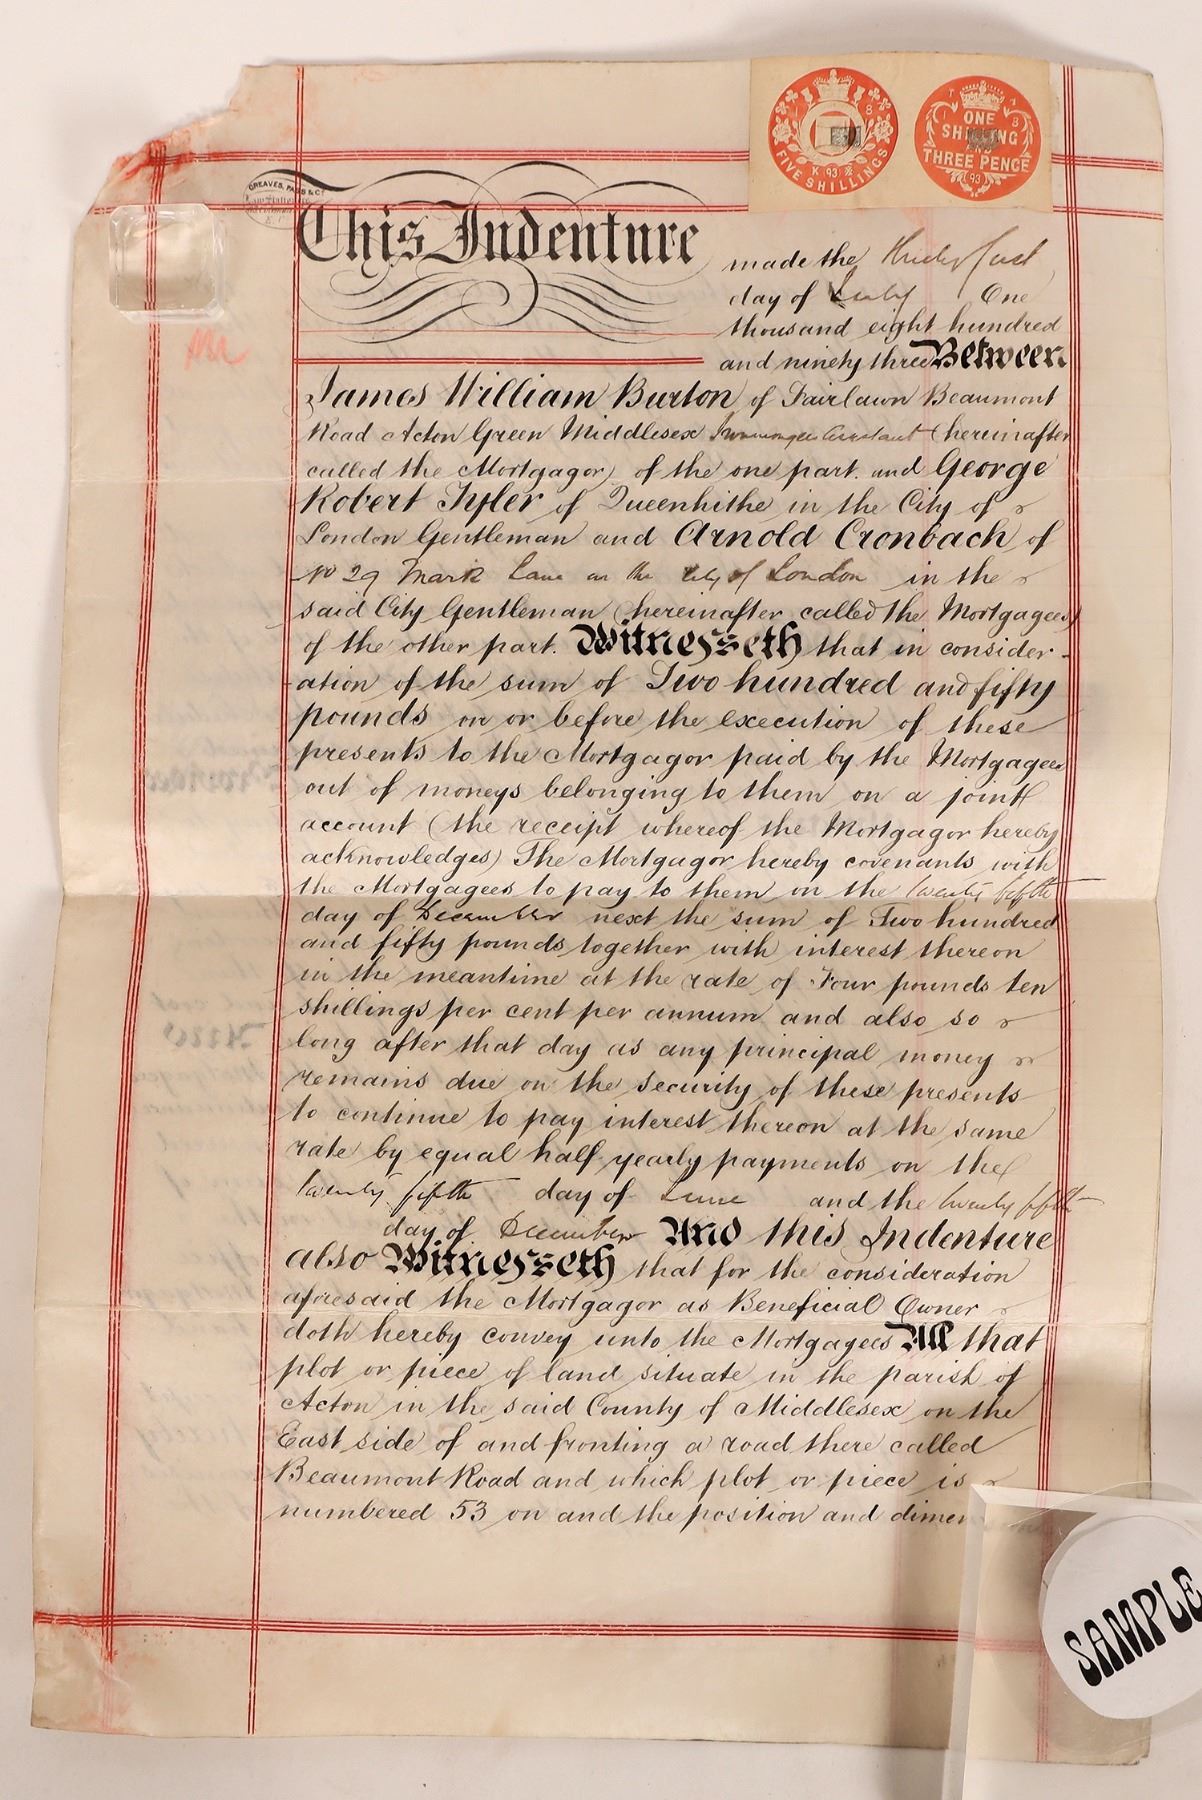 FIVE SHILLINGS
K 93
ONE
SHILLING
THREE PENCE
93
GREAVES, PASS & Co
This Indenture
made the Thirty first
day of July One
thousand eight hundred
and ninety three Between
James William Burton of Fairlawn Beaumont
Road Acton Green Middlesex Ironmongers Assistant (hereinafter
called the Mortgagor) of the one part and George
Robert Tyler of Queenhithe in the City of
London Gentleman and Arnold Cronbach of
No 29 Mark Lane in the City of London in the
said City Gentleman (hereinafter called the Mortgagees)
of the other part. Witnesseth that in consider-
ation of the sum of Two hundred and fifty
pounds on or before the execution of these
presents to the Mortgagor paid by the Mortgagees
out of moneys belonging to them on a joint
account (the receipt whereof the Mortgagor hereby
acknowledges) The Mortgagor hereby covenants with
the Mortgagees to pay to them on the twenty fifth
day of December next the sum of Two hundred
and fifty pounds together with interest thereon
in the meantime at the rate of Four pounds ten
shillings per cent per annum and also so
long after that day as any principal money
remains due on the security of these presents
to continue to pay interest thereon at the same
rate by equal half yearly payments on the
twenty fifth day of June and the twenty fifth
day of December And this Indenture
also Witnesseth that for the consideration
aforesaid the Mortgagor as Beneficial Owner
doth hereby convey unto the Mortgagees All that
plot or piece of land situate in the parish of
Acton in the said County of Middlesex on the
East side of and fronting a road there called
Beaumont Road and which plot or piece is
numbered 53 on and the position and dimen
SAMPLE